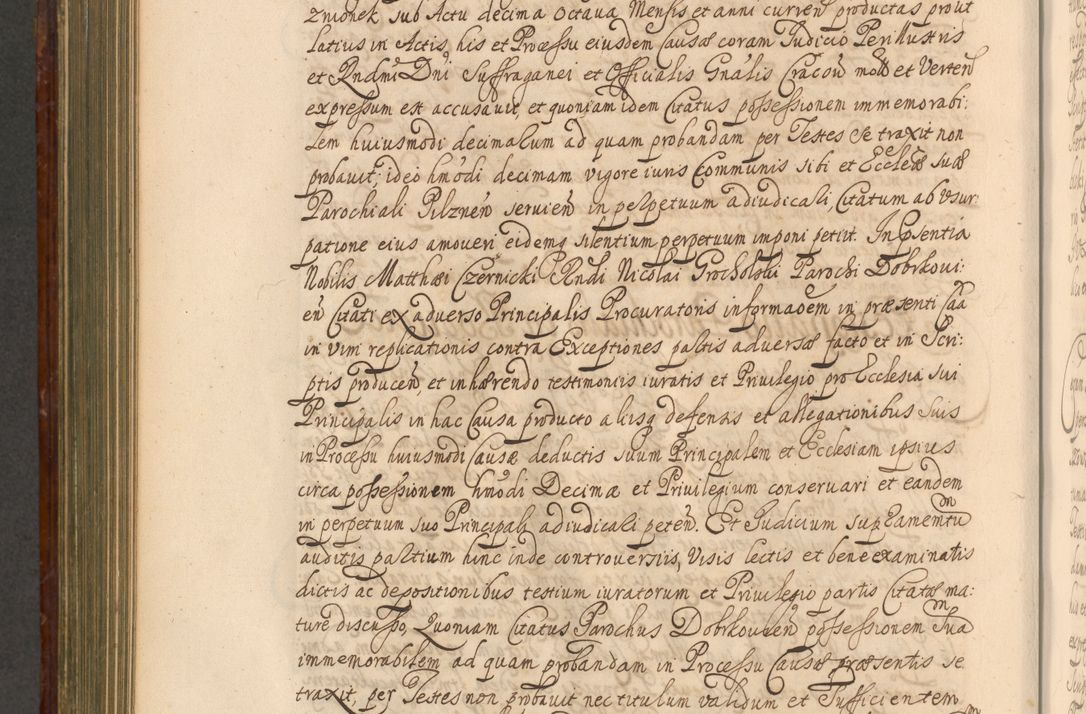 Zmonek sub Actu decima octaua Mensis et anni curren productas prout
latius in Actis, his et Processu eiusdem Causæ coram Iudicio Perillustris
et Rndmi Dni Suffraganei et Officialis Gnalis Cracoū mold et Verteñ
expressum est accusauit, et quoniam idem Citatus possessionem immemorabi:
lem huiusmodi decimalum ad quam probandam per Testes se traxit non
probauit; ideo hmodi decimam vigore iuris Communis sibi et Eccleæ suæ
Parochiali Pilzneñ seruieñ in perpetuum adiudicali, Citatum ab Vsur:
patione eius amoueri eidemq silentium perpetuum imponi petiit. In Psentia
Nobilis Matthæi Czernicki Rndi Nicolai Grocholski Parochi Dobrkoui:
eñ Citati ex aduerso Principalis Procuratoris informaoem in præsenti Caa
in vim replicationis contra Exceptiones paltis aduersæ facto et in Scri:
ptis produceñ, et inhærendo testimoniis iuratis et Priuilegio pro Ecclesia sui
Principalis in hac Causa producto aliisq defensis et allegationibus suis
in Processu huiusmodi Causæ deductis suum Principalem et Ecclesiam ipsius
circa possessionem hmodi Decimæ et Priuilegium conseruari et eandem
in perpetuum suo Principali adiudicali peteñ. Et Iudicium supEamemtu dn
auditis paltium hinc inde controuersiis, Visis lectis et bene examinatis
dictis ac depositionibus testium iuratorum et Priuilegio partis Citatæ ma:
ture discusso, Quoniam Citatus Parochus Dobrkouieñ possessionem sua dn
immemorabilem ad quam probandam in Processu Causæ præsentis se
traxit, per Testes non probauit nec titulum validum et Sufficientem